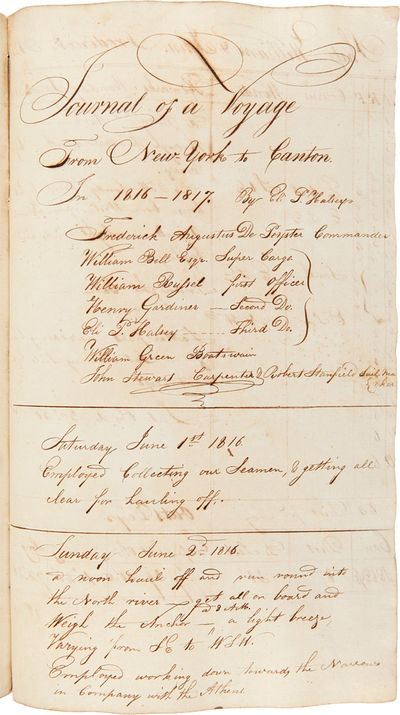 Journal of a Voyage
From New-York to Canton.
In 1816 – 1817. By Eli P. Halsey
Frederick Augustus De Peyster Commander
William Bell Esqr. Super Cargo
William Russel – first Officer
Henry Gardiner – Second Do.
Eli P. Halsey – Third Do.
William Green Boatswain
John Stewart Carpenter & Robert Stanfield Sail maker
Saturday June 1st 1816.
Employed Collecting our Seamen, & getting all
clear for hauling off.
Sunday June 2d. 1816.
a noon hauld off and run round into
the North river – get all on board and
Weigh the Anchor – a light breeze,
Varying from SE to WSW.
Employed working down towards the Narrows
in Company with the Athens